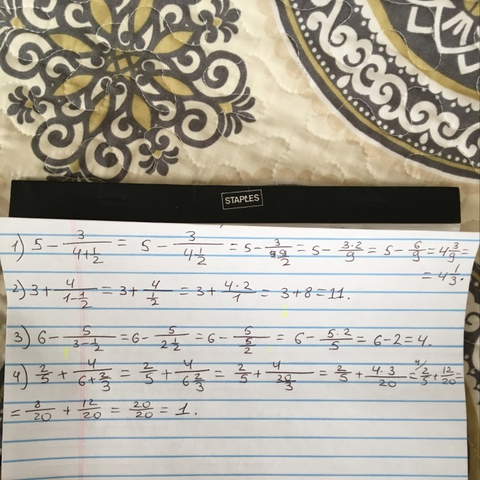 STAPLES
1) 5 - 3/(4+1/2) = 5 - 3/(4 1/2) = 5 - 3/(9/2) = 5 - 3·2/9 = 5 - 6/9 = 4 3/9 =
= 4 1/3.
2) 3 + 4/(1-1/2) = 3 + 4/(1/2) = 3 + 4·2/1 = 3+8 = 11.
3) 6 - 5/(3-1/2) = 6 - 5/(2 1/2) = 6 - 5/(5/2) = 6 - 5·2/5 = 6-2 = 4.
4) 2/5 + 4/(6+2/3) = 2/5 + 4/(6 2/3) = 2/5 + 4/(20/3) = 2/5 + 4·3/20 = 4/ 2/5 + 12/20
= 8/20 + 12/20 = 20/20 = 1.